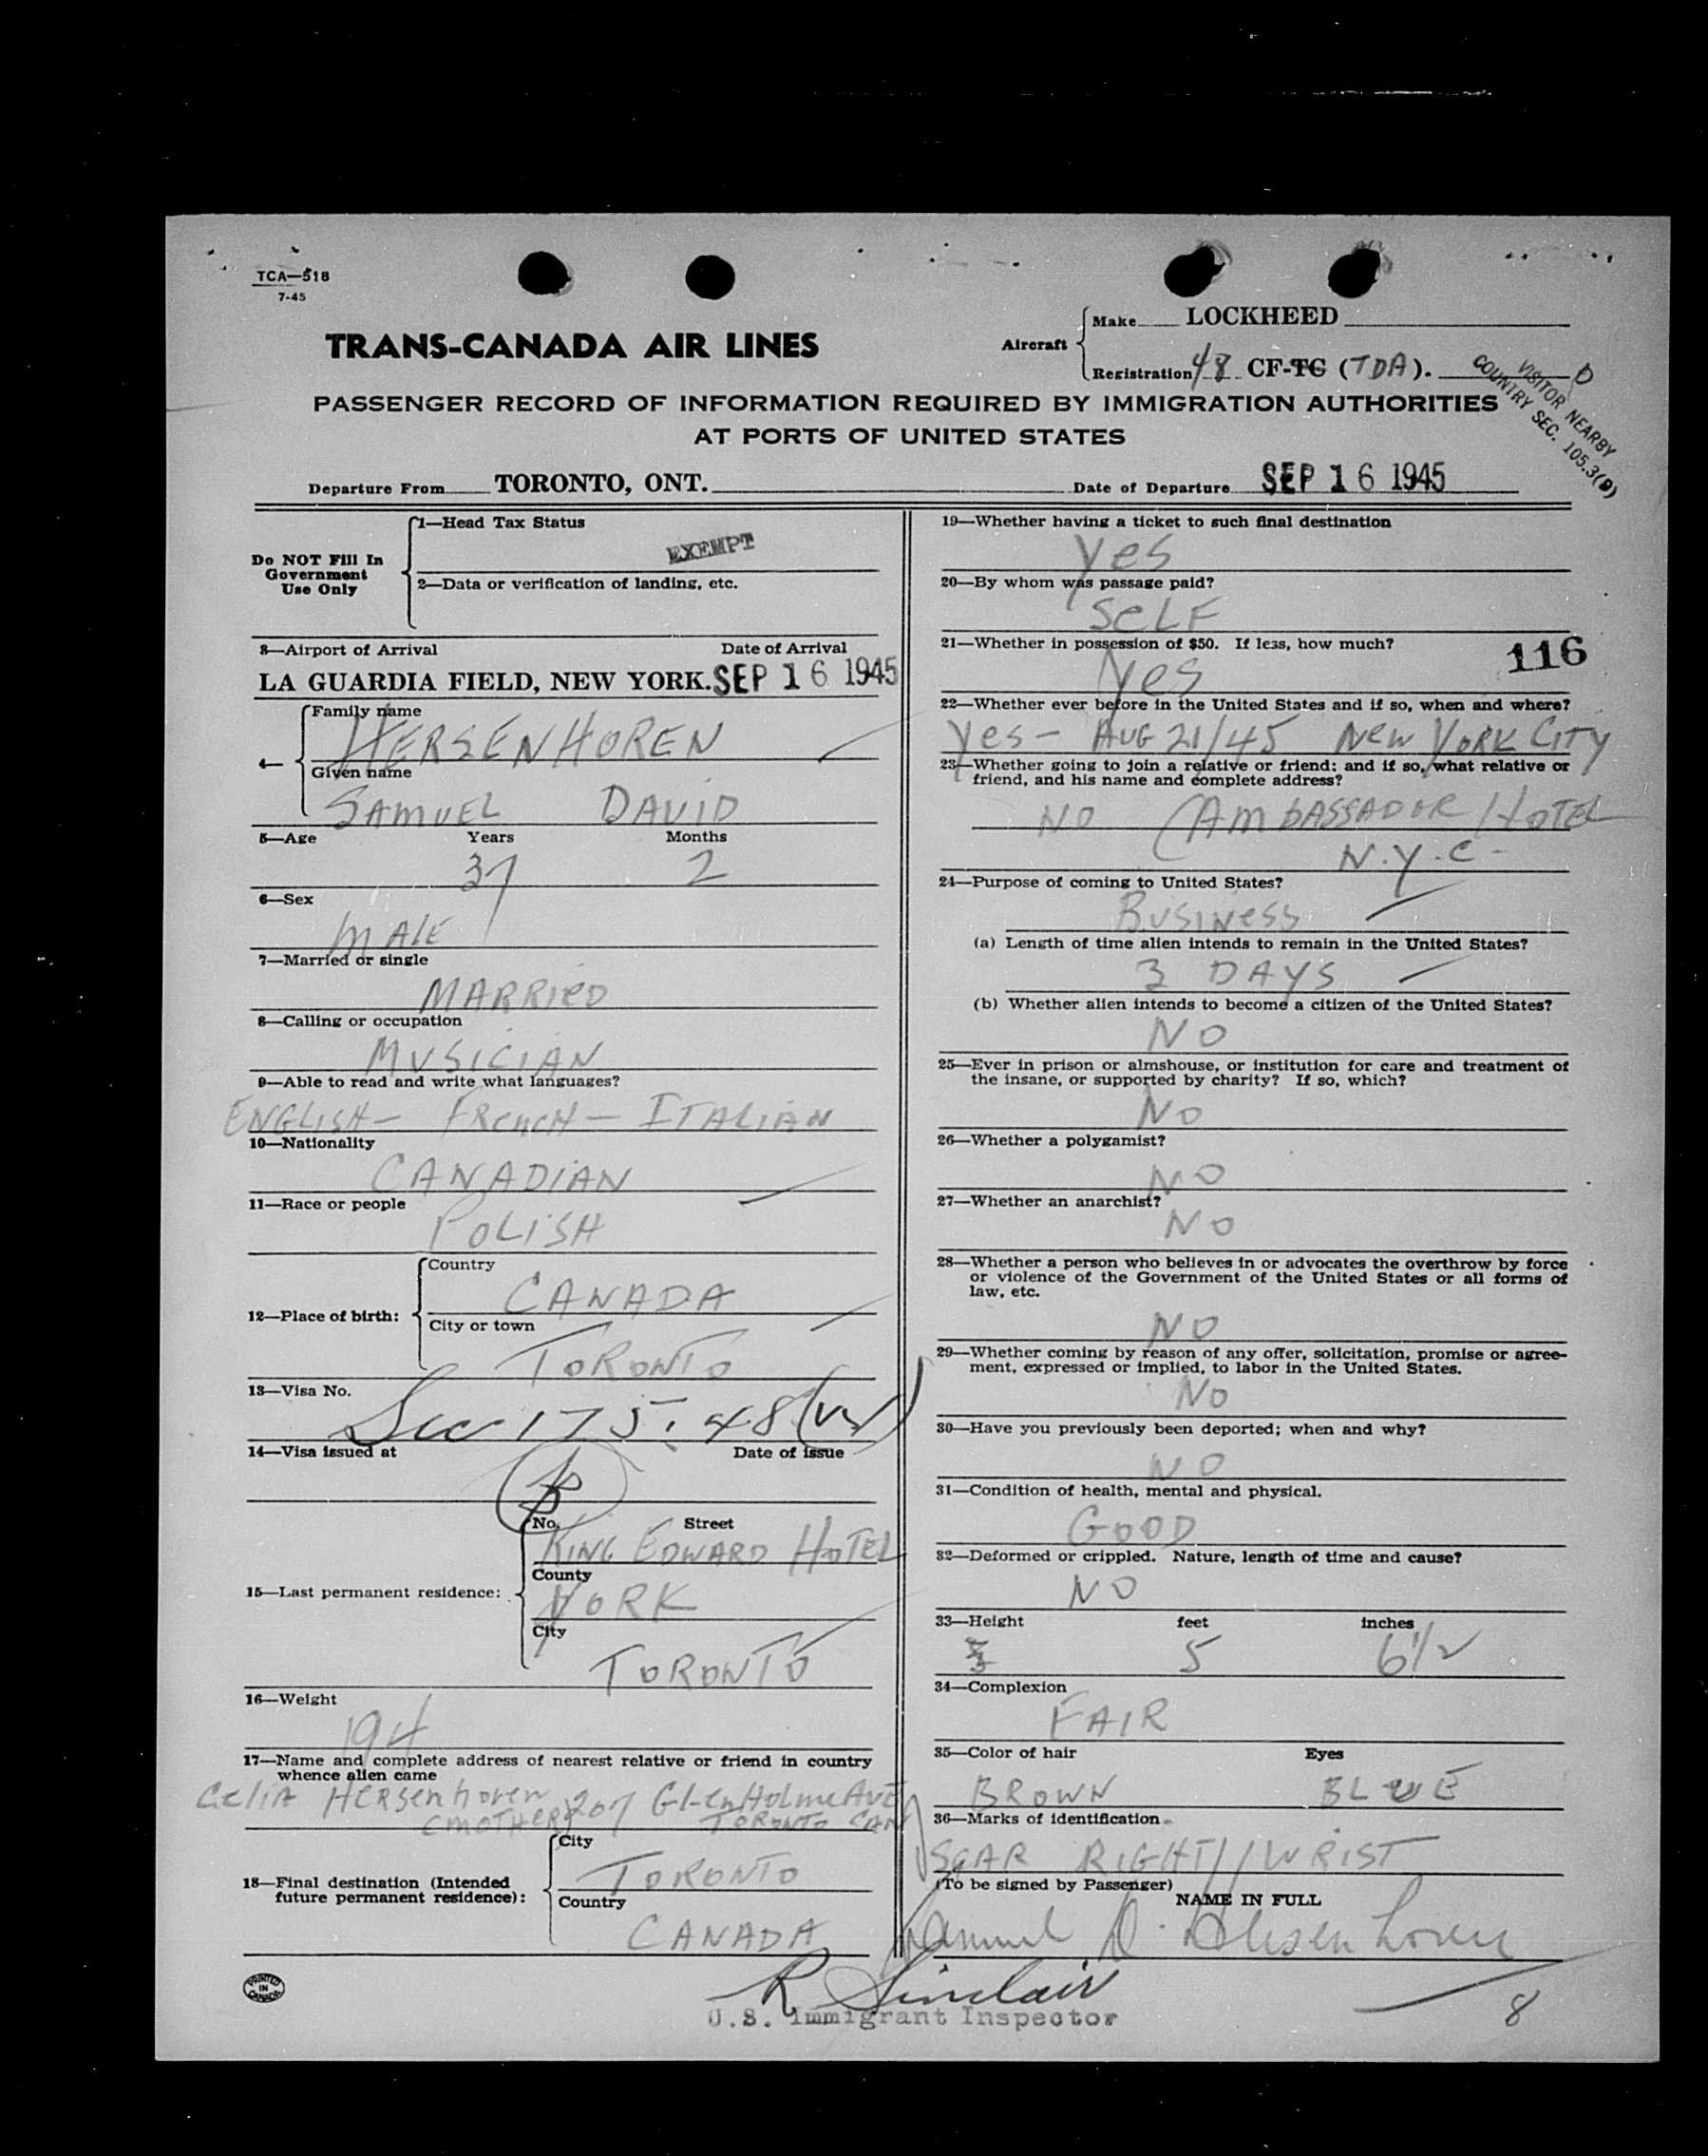 TCA—518
7-45
TRANS-CANADA AIR LINES
Aircraft
Make LOCKHEED
Registration 48 CF-TC (TDA).
VISITOR NEARBY
COUNTRY SEC. 105.3(D)
PASSENGER RECORD OF INFORMATION REQUIRED BY IMMIGRATION AUTHORITIES
AT PORTS OF UNITED STATES
Departure From TORONTO, ONT.
Date of Departure SEP 16 1945
Do NOT Fill In
Government
Use Only
1—Head Tax Status
EXEMPT
2—Data or verification of landing, etc.
3—Airport of Arrival Date of Arrival
LA GUARDIA FIELD, NEW YORK. SEP 16 1945
4—
Family name
HERSENHOREN
Given name
SAMUEL DAVID
5—Age Years Months
37 2
6—Sex
MALE
7—Married or single
MARRIED
8—Calling or occupation
MUSICIAN
9—Able to read and write what languages?
ENGLISH — FRENCH — ITALIAN
10—Nationality
CANADIAN
11—Race or people
POLISH
12—Place of birth:
Country
CANADA
City or town
TORONTO
13—Visa No.
Sec 175.48
14—Visa issued at Date of issue
15—Last permanent residence:
No. Street
KING EDWARD HOTEL
County
YORK
City
TORONTO
16—Weight
194
17—Name and complete address of nearest relative or friend in country
whence alien came
Celia Hersenhoren 207 GLenHolme Ave
(MOTHER) TORONTO CAN
18—Final destination (Intended
future permanent residence):
City
TORONTO
Country
CANADA
19—Whether having a ticket to such final destination
Yes
20—By whom was passage paid?
SELF
21—Whether in possession of $50. If less, how much?
116
Yes
22—Whether ever before in the United States and if so, when and where?
Yes — AUG 21/45 NEW YORK CITY
23—Whether going to join a relative or friend; and if so, what relative or
friend, and his name and complete address?
NO (AMBASSADOR HOTEL
N.Y.C-
24—Purpose of coming to United States?
BUSINESS
(a) Length of time alien intends to remain in the United States?
3 DAYS
(b) Whether alien intends to become a citizen of the United States?
NO
25—Ever in prison or almshouse, or institution for care and treatment of
the insane, or supported by charity? If so, which?
NO
26—Whether a polygamist?
NO
27—Whether an anarchist?
NO
28—Whether a person who believes in or advocates the overthrow by force
or violence of the Government of the United States or all forms of
law, etc.
NO
29—Whether coming by reason of any offer, solicitation, promise or agree-
ment, expressed or implied, to labor in the United States.
NO
30—Have you previously been deported; when and why?
NO
31—Condition of health, mental and physical.
GOOD
32—Deformed or crippled. Nature, length of time and cause?
NO
33—Height feet inches
5 6 1/2
34—Complexion
FAIR
35—Color of hair Eyes
BROWN BLUE
36—Marks of identification
SCAR RIGHT WRIST
(To be signed by Passenger)
NAME IN FULL
Samuel D. Hersenhoren
PRINTED
IN
CANADA
R Sinclair
U.S. Immigrant Inspector
8